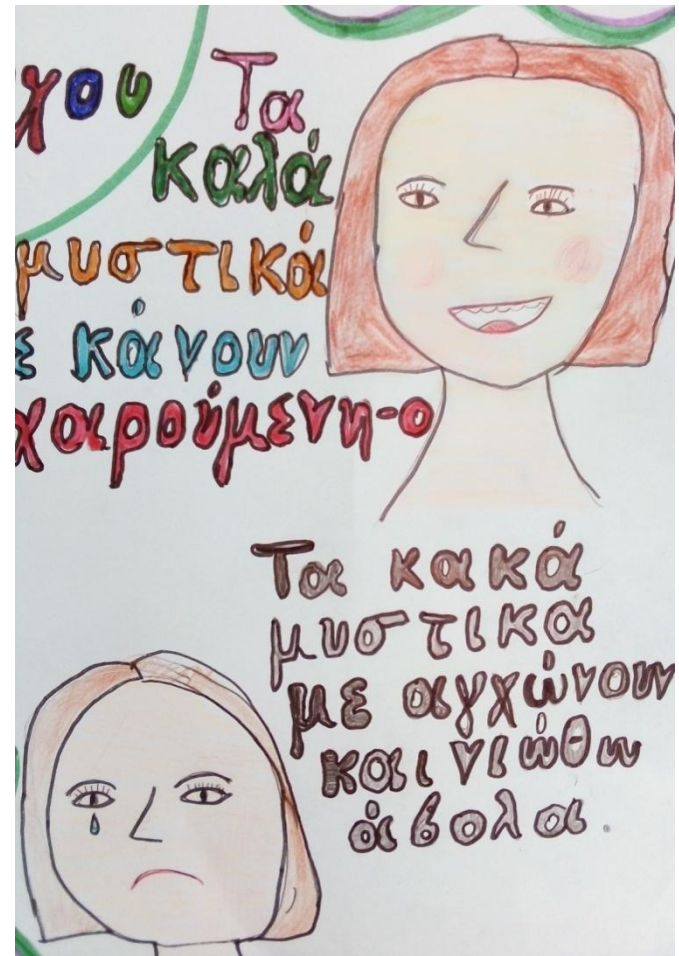 χου
Τα
καλά
μυστικά
ε κάνουν
χαρούμενη-ο
Τα κακά
μυστικα
με αγχώνουν
και νιώθω
άβολα.